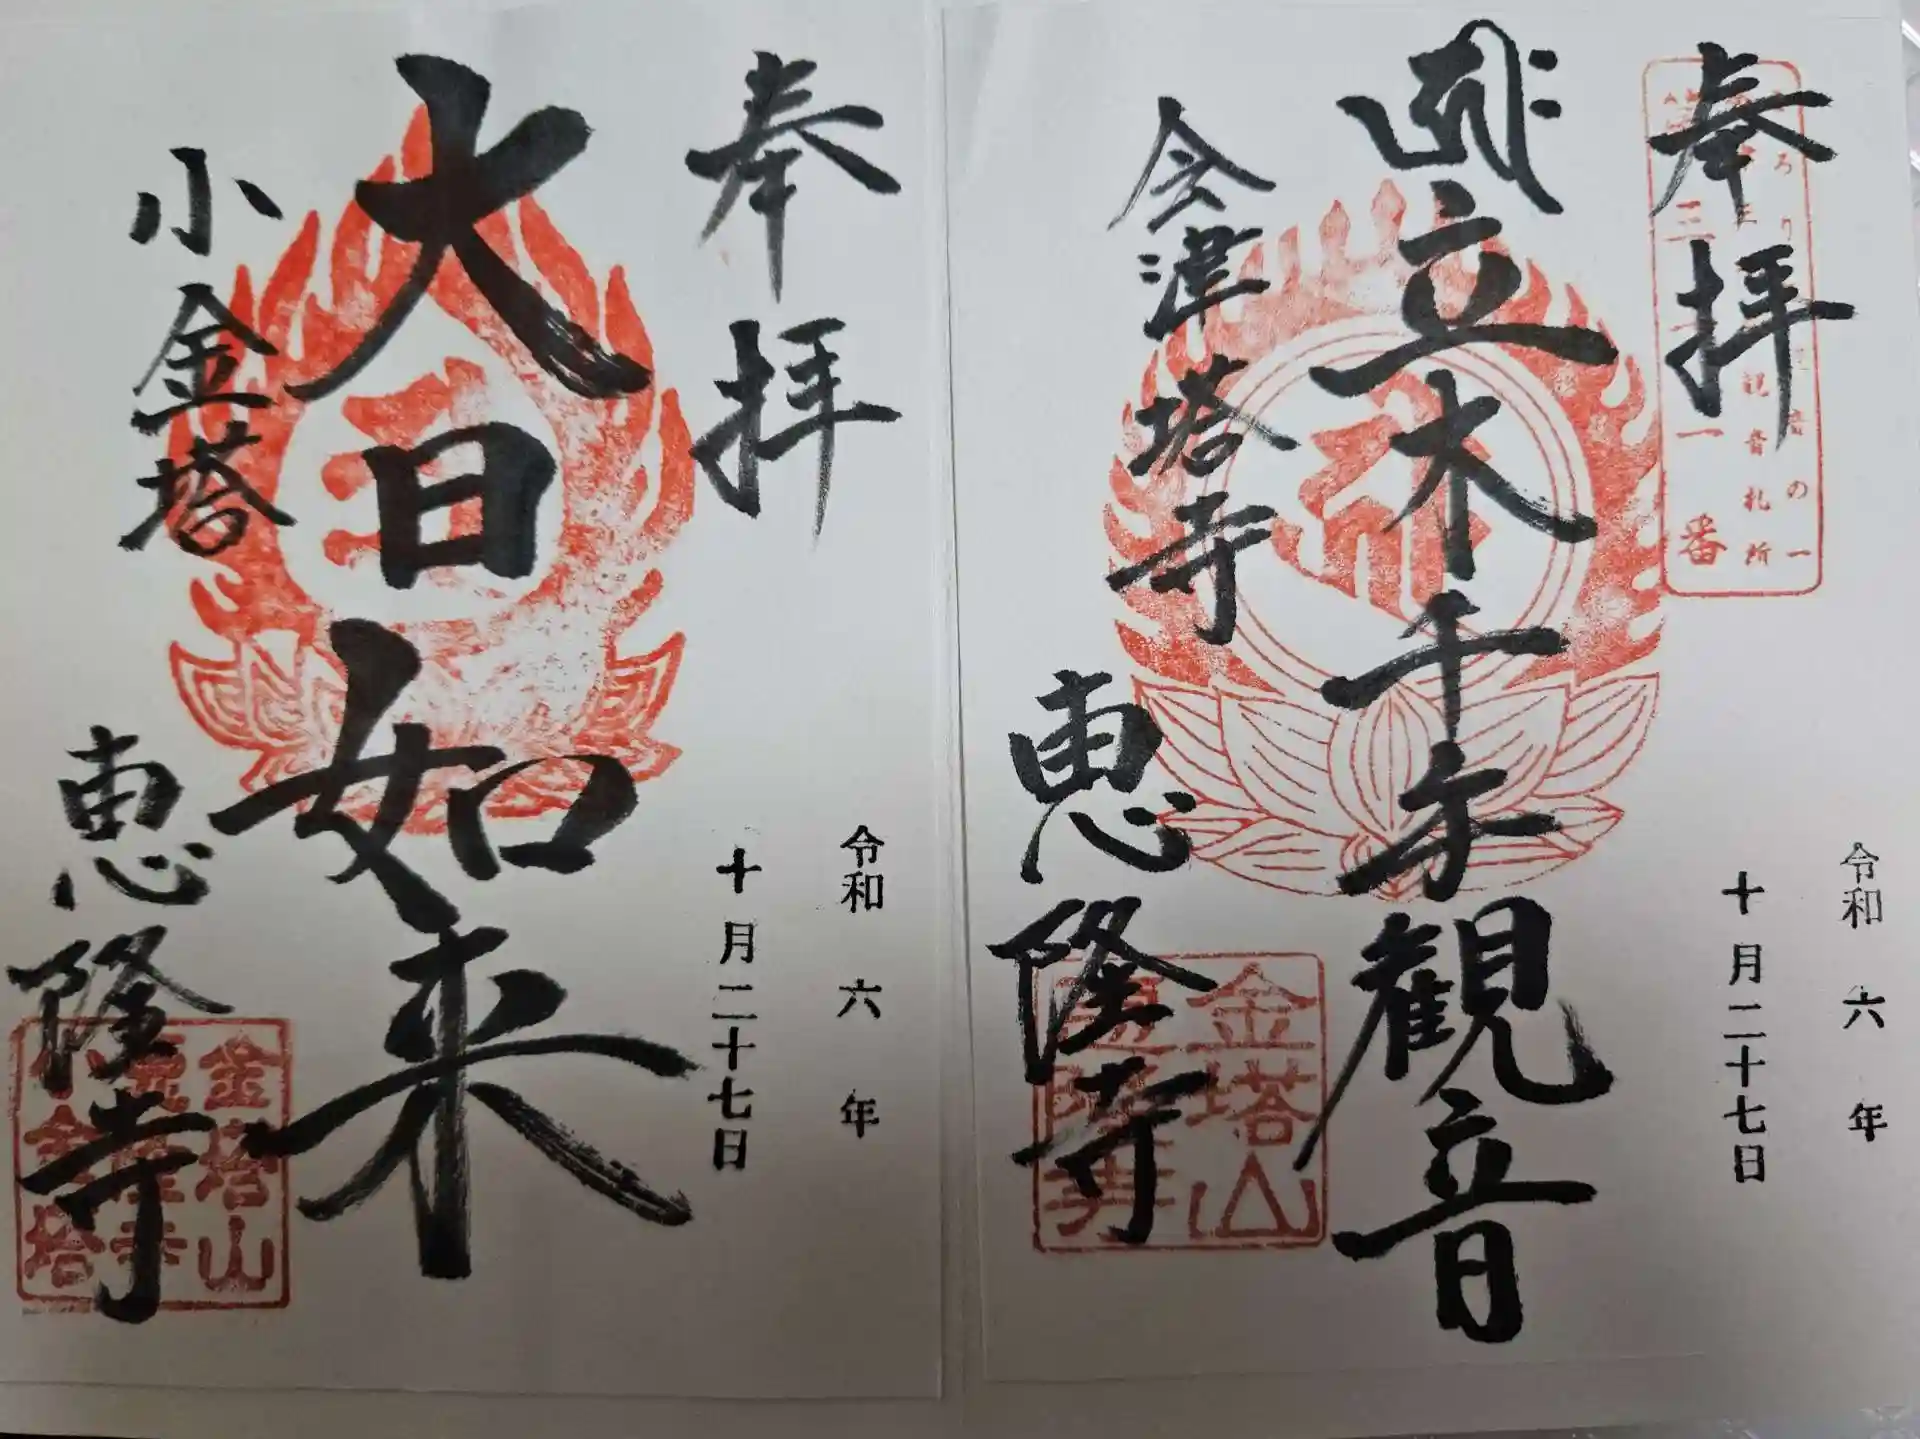 奉拝
三
一
番
観音札所
音の一
立木千手観音
会津塔寺
恵隆寺
金塔山
令和六年
十月二十七日
奉拝
大日如来
小金塔
恵隆寺
金塔山
令和六年
十月二十七日